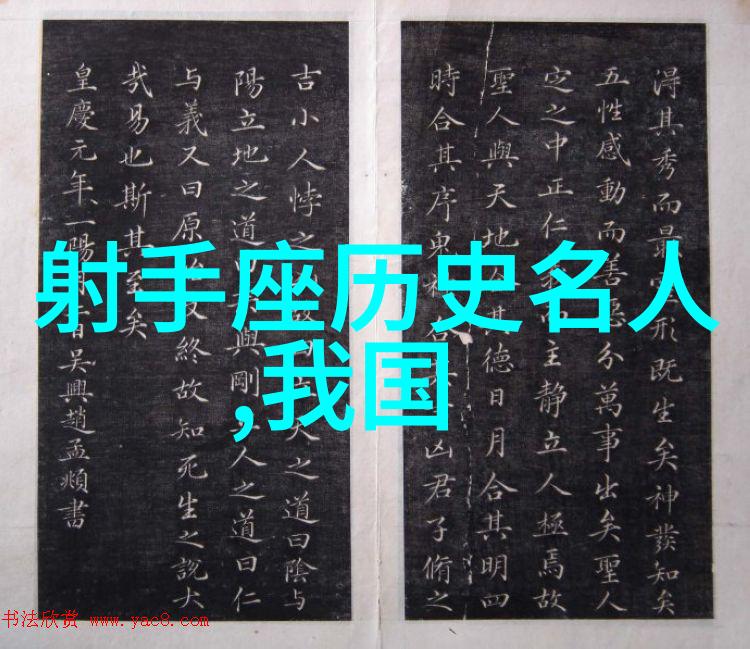 射手座历史名人
,我国
淂其秀而最形既生矣神發知矣
五性感動而善惡分萬事出矣聖人
定之中正仁而主靜立人極焉故
聖人與天地其德日月合其明四
時合其序鬼合凶君子脩之
吉小人悖之天之道曰陰与
陽立地之道與剛人之道曰仁
与義又曰原終故知死生之說大
哉易也斯其至矣
皇慶元年一陽月吴興趙孟頫書
书法欣赏 www.yac8.com